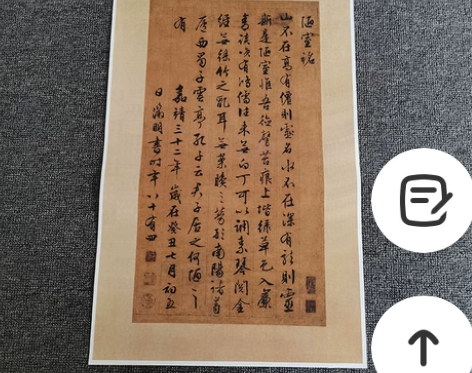 陋室铭
山不在高有僊則名水不在深有龍則靈
斯是陋室惟吾德馨苔痕上堦綠草色入簾
青談笑有鴻儒往來無白丁可以調素琴閱金
經無絲竹之亂耳無案牘之勞形南陽諸葛
廬西蜀子雲亭孔子云君子居之何陋之
有
嘉靖三十二年歲在癸丑七月初五
日徵明書時年八十有四